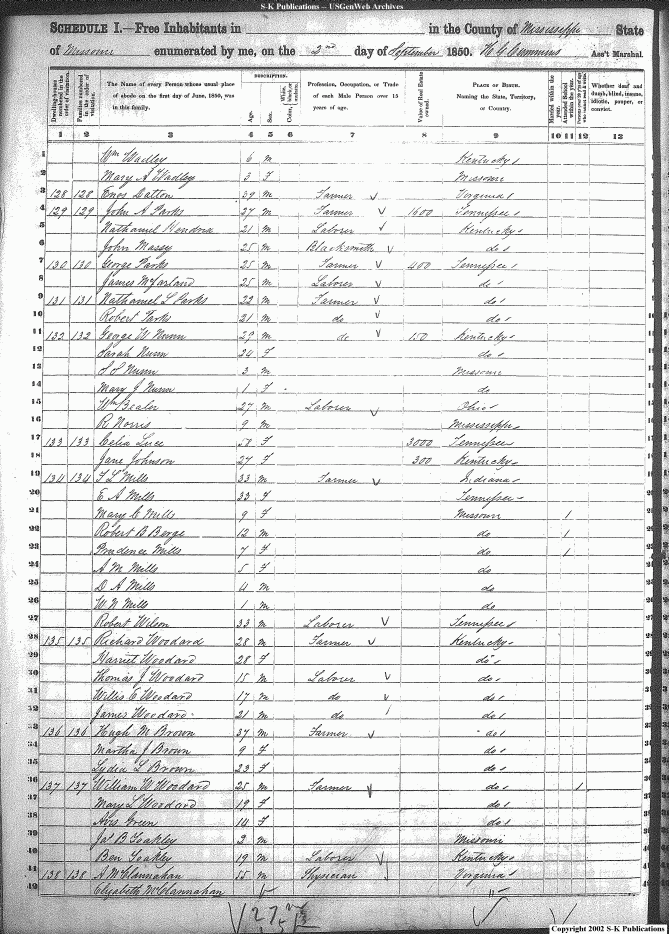 S-K Publications -- USGenWeb Archives
SCHEDULE I.—Free Inhabitants in in the County of Mississippi State
of Missouri enumerated by me, on the 2nd day of September 1850. Ass't Marshal.
Dwelling-houses numbered in the order of visitation.
Families numbered in the order of visitation.
The Name of every Person whose usual place of abode on the first day of June, 1850, was in this family.
DESCRIPTION.
Age.
Sex.
White, black, or mulatto.
Color,
Profession, Occupation, or Trade of each Male Person over 15 years of age.
Value of Real Estate owned.
PLACE OF BIRTH. Naming the State, Territory, or Country.
Married within the year.
Attended School within the year.
Whether deaf and dumb, blind, insane, idiotic, pauper, or convict.
1 2 3 4 5 6 7 8 9 10 11 12 13
1 Wm Wadley 6 m Kentucky
2 Mary A Wadley 3 F Missouri
3 128 128 Enos Datton 39 m Farmer Virginia
4 129 129 John A Parks 27 m Farmer 1600 Tennessee
5 Nathaniel 21 m Laborer Kentucky
6 John Massy 25 m Blacksmith do
7 130 130 George Parks 25 m Farmer 400 Tennessee
8 James McFarland 25 m Laborer do
9 131 131 Nathaniel L Parks 22 m Farmer do
10 Robert Parks 21 m do do
11 132 132 George W Nunn 29 m do 150 Kentucky
12 Sarah Nunn 24 F do
13 Nunn 3 m Missouri
14 Mary J Nunn 1 F do
15 Wm Bealer 27 m Laborer Ohio
16 R Norris 9 m Mississippi
17 133 133 Celia Luce 50 F 3000 Tennessee
18 Jane Johnson 27 F 300 Kentucky
19 134 134 Mills 33 m Farmer Indiana
20 E A Mills 33 F Tennessee
21 Mary C Mills 9 F Missouri 1
22 Robert B Berge 12 m do 1
23 Prudence Mills 7 F do 1
24 A M Mills 5 F do
25 D A Mills 4 m do
26 W N Mills 1 m do
27 Robert Wilson 33 m Laborer Tennessee
28 135 135 Richard Woodard 28 m Farmer Kentucky
29 Harriet Woodard 28 F do
30 Thomas J Woodard 15 m Laborer do
31 Willis E Woodard 17 m do do
32 James Woodard 21 m do do
33 136 136 Hugh M Brown 37 m Farmer do
34 Martha J Brown 9 F do
35 Lydia L Brown 23 F do
36 137 137 William W Woodard 25 m Farmer do 1
37 Mary L Woodard 19 F do
38 Green 14 F do
39 Jas B Toakley 2 m Missouri
40 Ben Toakley 19 m Laborer Kentucky
41 138 138 A McClannahan 55 m Physician Virginia
42 Elizabeth McClannahan "
27
Copyright 2002 S-K Publications